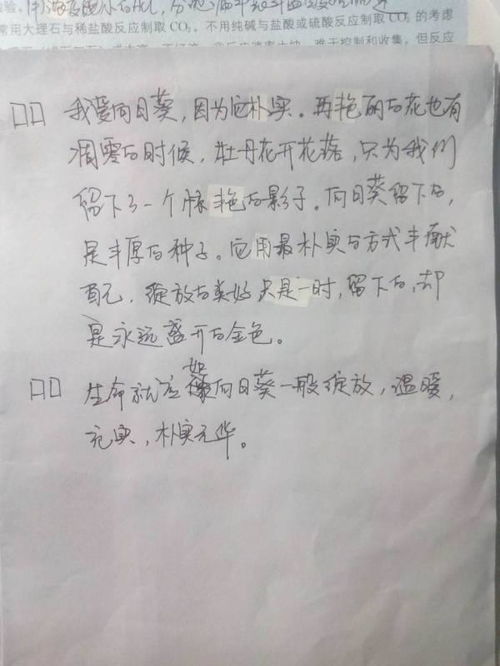 常用大理石与稀盐酸反应制取CO₂。不用纯碱与盐酸或硫酸反应制取CO₂的考虑
难于控制和收集。但反应
□□ 我爱向日葵，因为它朴实。再艳丽的花也有
凋零的时候，牡丹花开花落，只为我们
留下了一个惊艳的影子。向日葵留下的，
是丰厚的种子。它用最朴实的方式丰献
自己，绽放的美好只是一时，留下的，却
是永远盛开的金色。
□□ 生命就应如向日葵一般绽放，温暖，
充实，朴实无华。